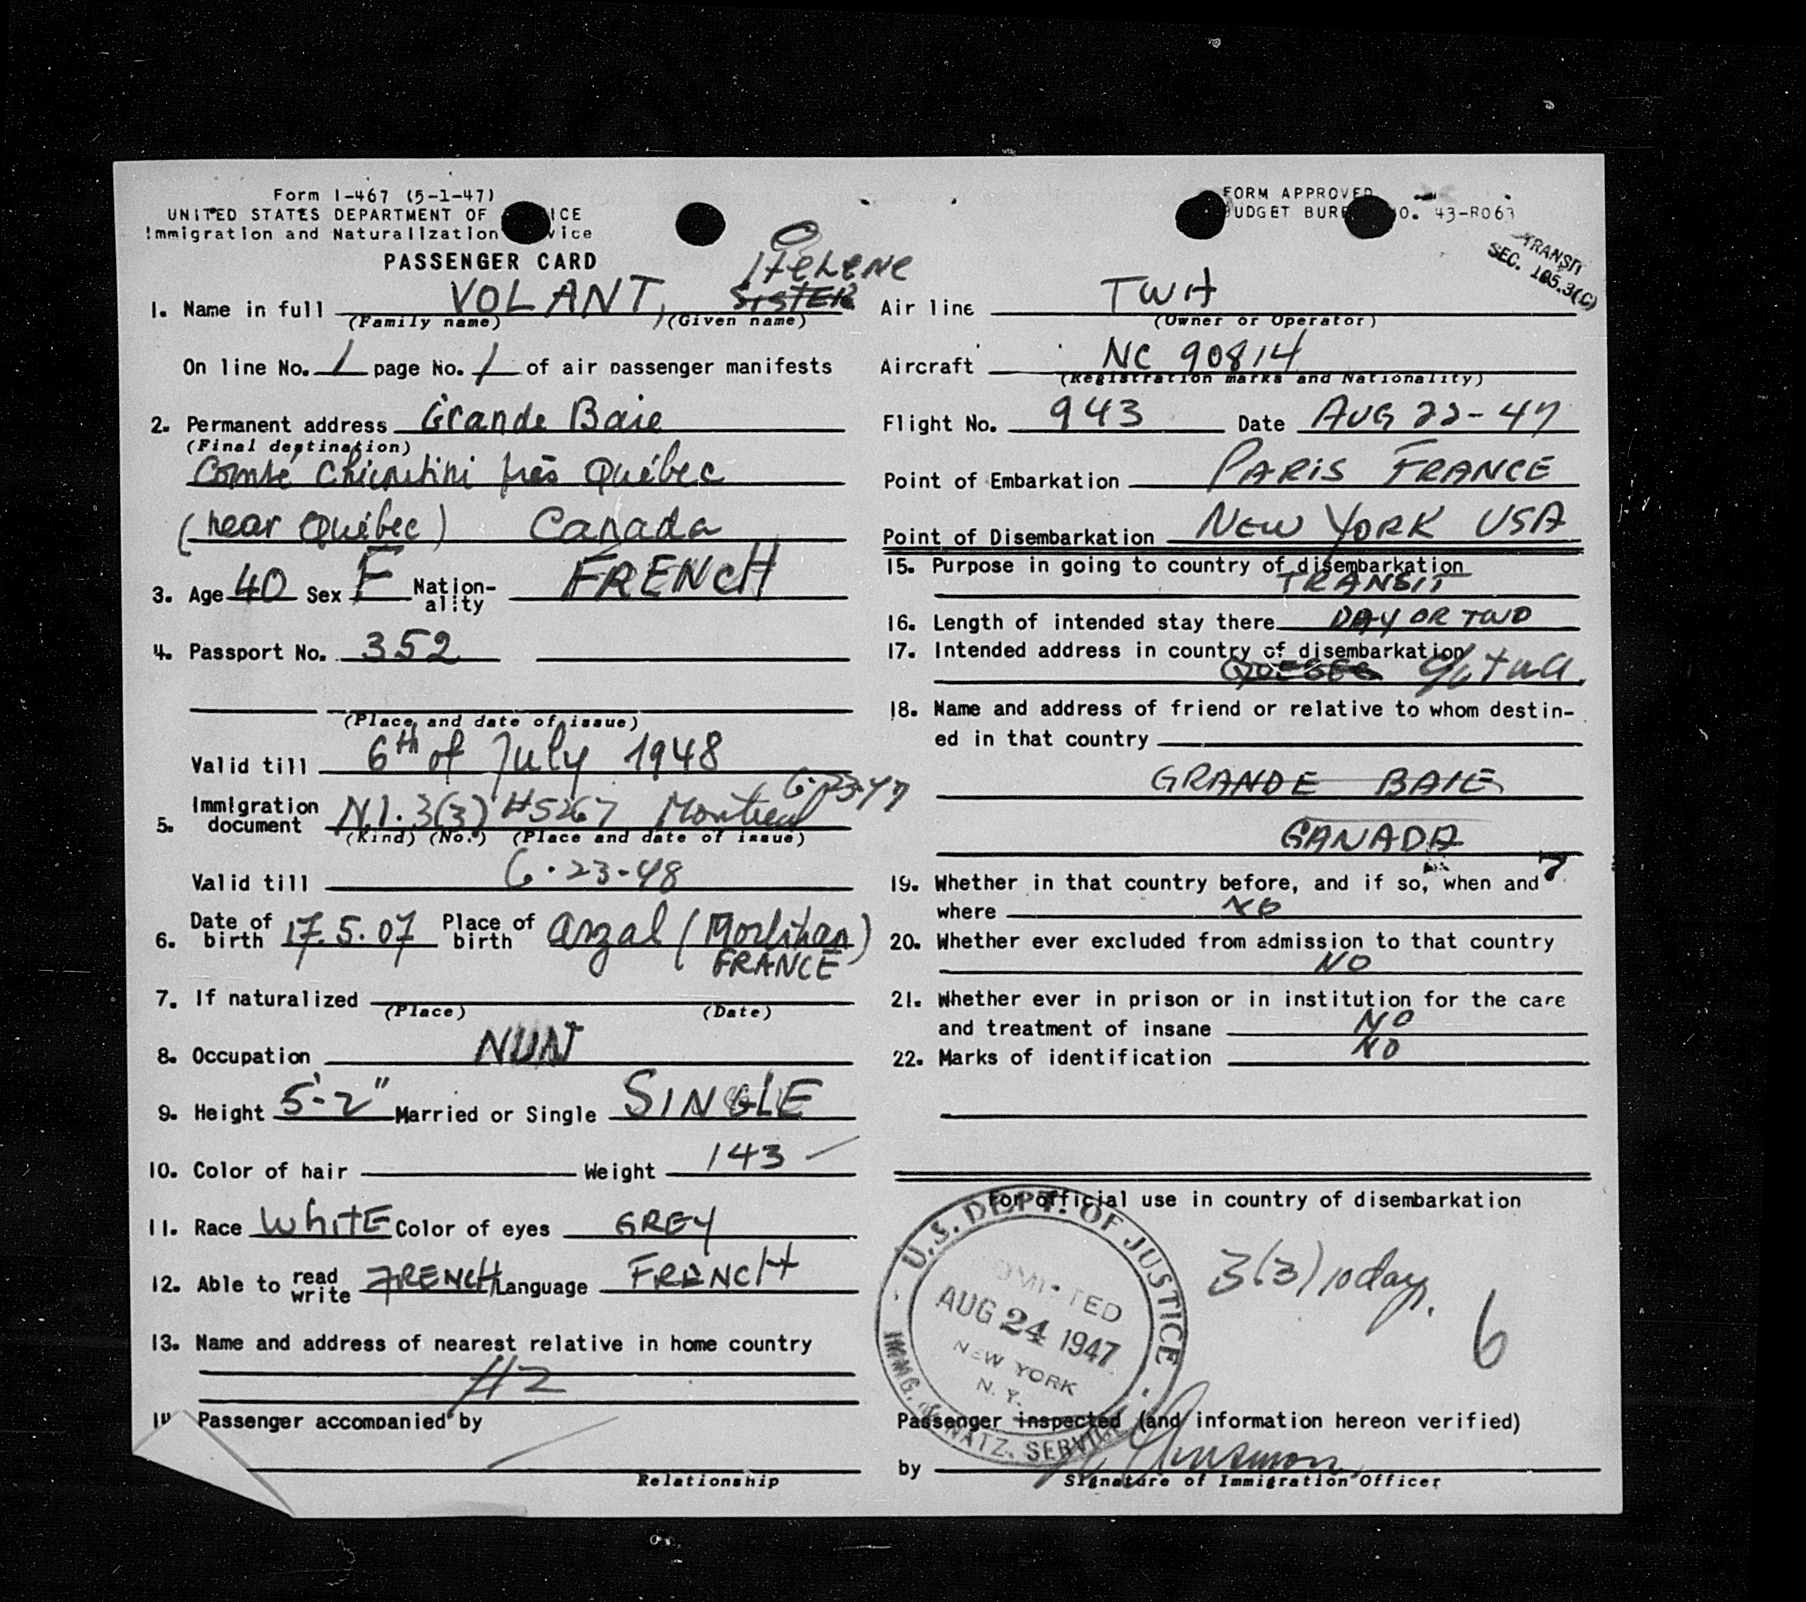 Form I-467 (5-1-47)
UNITED STATES DEPARTMENT OF ICE
Immigration and Naturalization vice
PASSENGER CARD
FORM APPROVED
BUDGET BURE NO. 43-R063
TRANSIT
SEC. 105.3(C)
HELENE
1. Name in full VOLANT, SISTER
(Family name) (Given name)
On line No. 1 page No. 1 of air passenger manifests
2. Permanent address Grande Baie
(Final destination)
Comté près Québec
(near Québec) Canada
3. Age 40 Sex F Nation-ality FRENCH
4. Passport No. 352
(Place and date of issue)
Valid till 6th of July 1948
5. Immigration document N.I. 3(3) #5267 Montreal 6-23-47
(Kind) (No.) (Place and date of issue)
Valid till 6-23-48
6. Date of birth 17.5.07 Place of birth Arzal (Morbihan)
FRANCE
7. If naturalized
(Place) (Date)
8. Occupation NUN
9. Height 5'-2" Married or Single SINGLE
10. Color of hair Weight 143
11. Race WhitE Color of eyes GREY
12. Able to read write FRENCH Language FRENCH
13. Name and address of nearest relative in home country
14 Passenger accompanied by
Relationship
Air line TWA
(Owner or Operator)
Aircraft NC 90814
(Registration marks and Nationality)
Flight No. 943 Date AUG 22-47
Point of Embarkation PARIS FRANCE
Point of Disembarkation NEW YORK USA
15. Purpose in going to country of disembarkation
TRANSIT
16. Length of intended stay there DAY OR TWO
17. Intended address in country of disembarkation
QUEBEC c/o twa.
18. Name and address of friend or relative to whom destin-
ed in that country
GRANDE BAIE
CANADA
19. Whether in that country before, and if so, when and ?
where NO
20. Whether ever excluded from admission to that country
NO
21. Whether ever in prison or in institution for the care
and treatment of insane NO
22. Marks of identification NO
For official use in country of disembarkation
3(3) 10 days.
6
U.S. DEPT. OF JUSTICE
ADMITTED
AUG 24 1947
NEW YORK
N. Y.
IMMG. & NATZ. SERVICE
Passenger inspected (and information hereon verified)
by
Signature of Immigration Officer